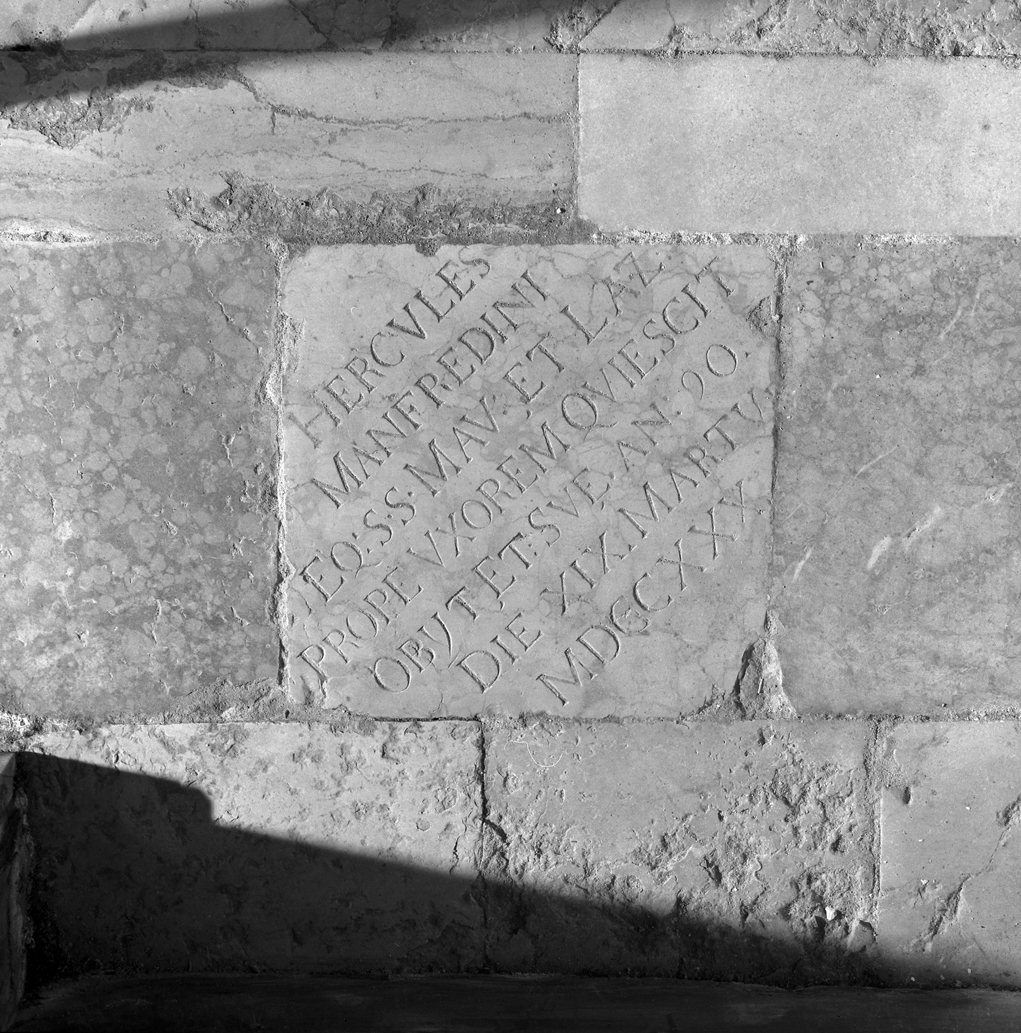 HERCVLES
MANFREDINI
EQ: S.S. MAV: ET LAZ
PROPE VXOREM QVIESCIT
OBIJT ET: SVE. AN. 90.
DIE XIX MARTIJ
MDCCXXX